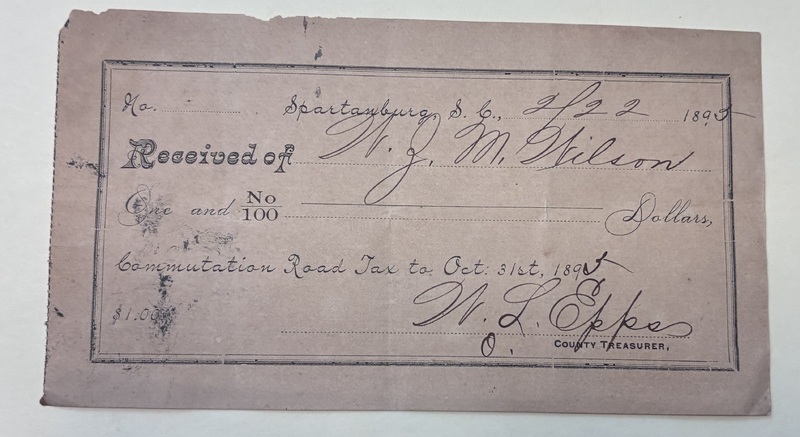 No. Spartanburg, S. C., 2/22 1895
Received of W. J. M. Wilson
One and No/100 Dollars,
Commutation Road Tax to Oct: 31st, 1895
$1.00
W. L. Epps
O. COUNTY TREASURER,